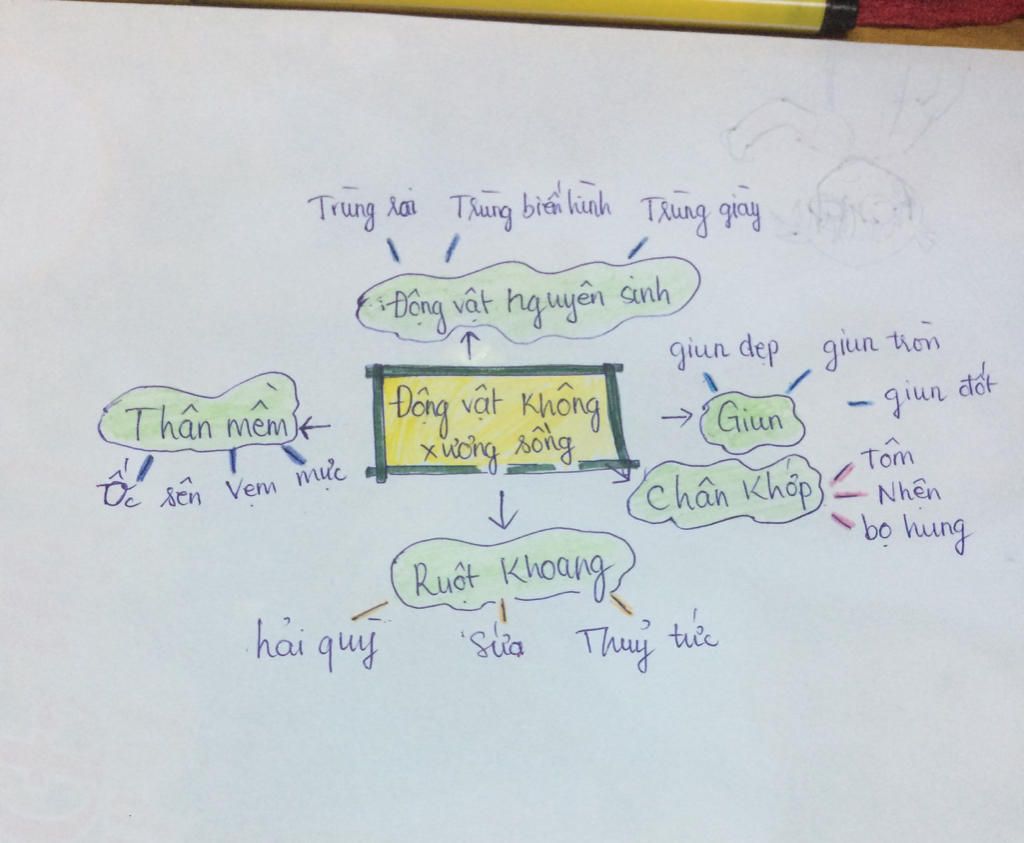 Trùng roi
Trùng biến hình
Trùng giày
Động vật nguyên sinh
giun dẹp
giun tròn
giun đốt
Giun
Động vật không
xương sống
Thân mềm
Ốc sên
Vẹm
mực
Chân Khớp
Tôm
Nhện
bọ hung
Ruột Khoang
hải quỳ
Sứa
Thuỷ tức